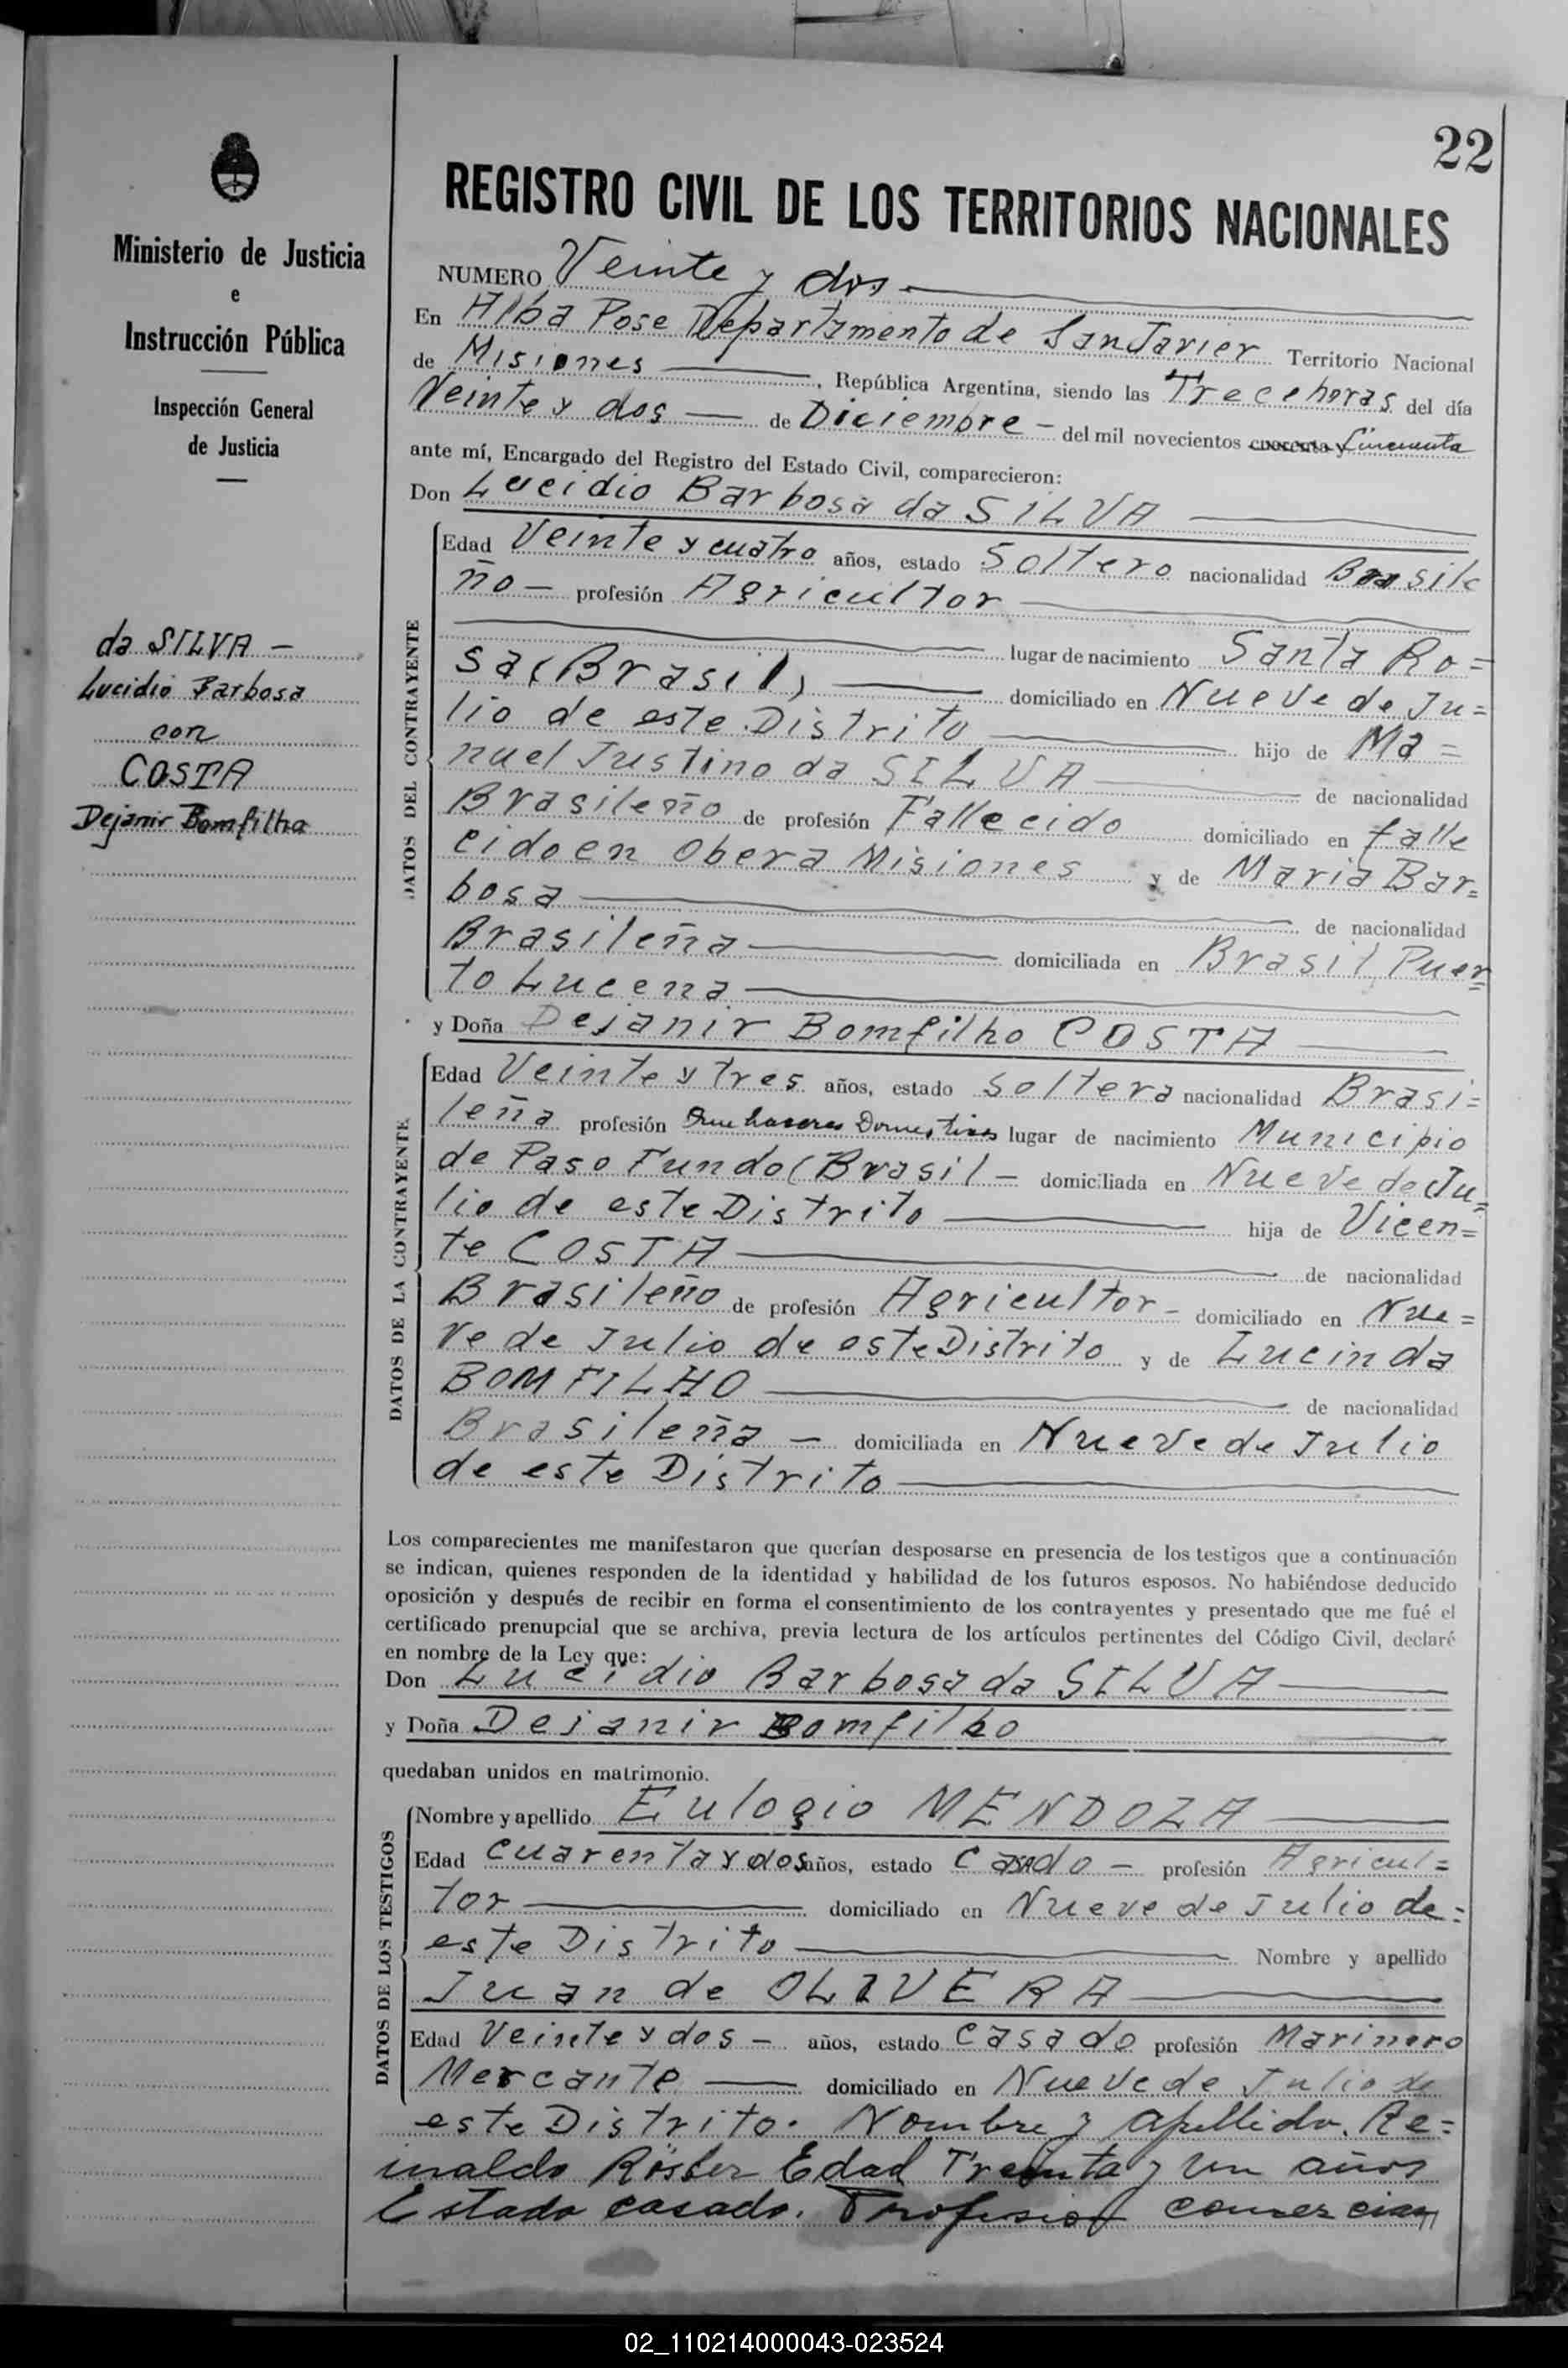 22
Ministerio de Justicia
e
Instrucción Pública
Inspección General
de Justicia
da SILVA –
Lucidio Barbosa
con
COSTA
Dejanir Bomfilho
REGISTRO CIVIL DE LOS TERRITORIOS NACIONALES
NUMERO Veinte y dos
En Alba Pose Departamento de San Javier Territorio Nacional
de Misiones , República Argentina, siendo las Trece horas del día
Veinte y dos de Diciembre – del mil novecientos cuarenta y Cincuenta
ante mí, Encargado del Registro del Estado Civil, comparecieron:
Don Lucidio Barbosa da SILVA
DATOS DEL CONTRAYENTE
Edad Veinte y cuatro años, estado Soltero nacionalidad Brasile
ño – profesión Agricultor
lugar de nacimiento Santa Ro=
sa (Brasil) domiciliado en Nueve de Ju=
lio de este Distrito hijo de Ma=
nuel Justino da SILVA de nacionalidad
Brasileño de profesión Fallecido domiciliado en falle
cido en Obera Misiones y de Maria Bar=
bosa de nacionalidad
Brasileña domiciliada en Brasil Puer=
to Lucena
y Doña Dejanir Bomfilho COSTA
DATOS DE LA CONTRAYENTE
Edad Veinte y tres años, estado Soltera nacionalidad Brasi=
leña profesión Quehaceres Domesticos lugar de nacimiento Municipio
de Paso Fundo (Brasil – domiciliada en Nueve de Ju=
lio de este Distrito hija de Vicen=
te COSTA de nacionalidad
Brasileño de profesión Agricultor – domiciliado en Nue=
ve de Julio de este Distrito y de Lucinda
BOMFILHO de nacionalidad
Brasileña – domiciliada en Nueve de Julio
de este Distrito
Los comparecientes me manifestaron que querían desposarse en presencia de los testigos que a continuación
se indican, quienes responden de la identidad y habilidad de los futuros esposos. No habiéndose deducido
oposición y después de recibir en forma el consentimiento de los contrayentes y presentado que me fué el
certificado prenupcial que se archiva, previa lectura de los artículos pertinentes del Código Civil, declaré
en nombre de la Ley que:
Don Lucidio Barbosa da SILVA
y Doña Dejanir Bomfilho
quedaban unidos en matrimonio.
DATOS DE LOS TESTIGOS
Nombre y apellido Eulogio MENDOZA
Edad cuarenta y dos años, estado Casado – profesión Agricul=
tor domiciliado en Nueve de Julio de=
este Distrito Nombre y apellido
Juan de OLIVERA
Edad Veinte y dos – años, estado casado profesión Marinero
Mercante domiciliado en Nueve de Julio de
este Distrito. Nombre y apellido. Re=
inaldo Röster Edad Treinta y Un años
Estado casado. Profesion comercian
02_110214000043-023524